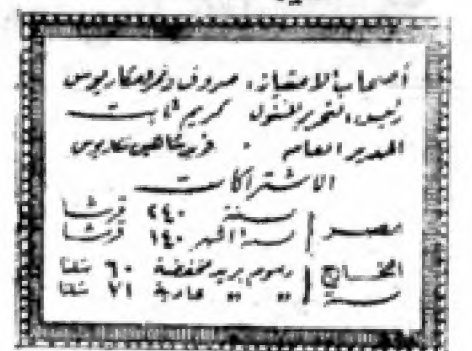 أصحاب الامتياز: صروف ونمر ومكاريوس
رئيس التحرير المسئول كريم ثابت
المدير العام . فريد شاهين مكاريوس
الاشتراكات
مصر | سنة ٢٤٠ قرشا
ستة اشهر ١٤٠ قرشا
الخارج | رسوم بريد مخفضة ٦٠ شلنا
سنة | " " عادية ٧١ شلنا